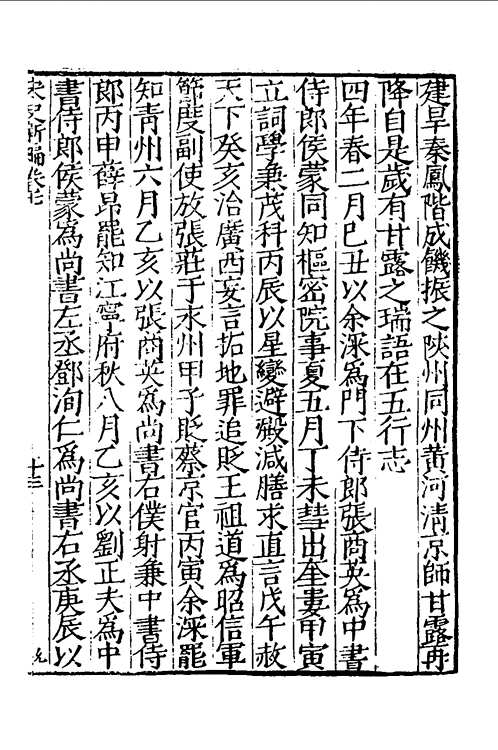 建旱秦鳳階成饑振之陝州同州黃河清京師甘露再
降自是歲有甘露之瑞語在五行志
四年春二月己丑以余深爲門下侍郎張商英爲中書
侍郎侯蒙同知樞密院事夏五月丁未彗出奎婁甲寅
立詞學兼茂科丙辰以星變避殿減膳求直言戊午赦
天下癸亥治廣西妄言拓地罪追貶王祖道爲昭信軍
節度副使放張莊于永州甲子貶蔡京官丙寅余深罷
知青州六月乙亥以張商英爲尚書右僕射兼中書侍
郎丙申薛昻罷知江寧府秋八月乙亥以劉正夫爲中
書侍郎侯蒙爲尚書左丞鄧洵仁爲尚書右丞庚辰以
宋史新編卷七
十三